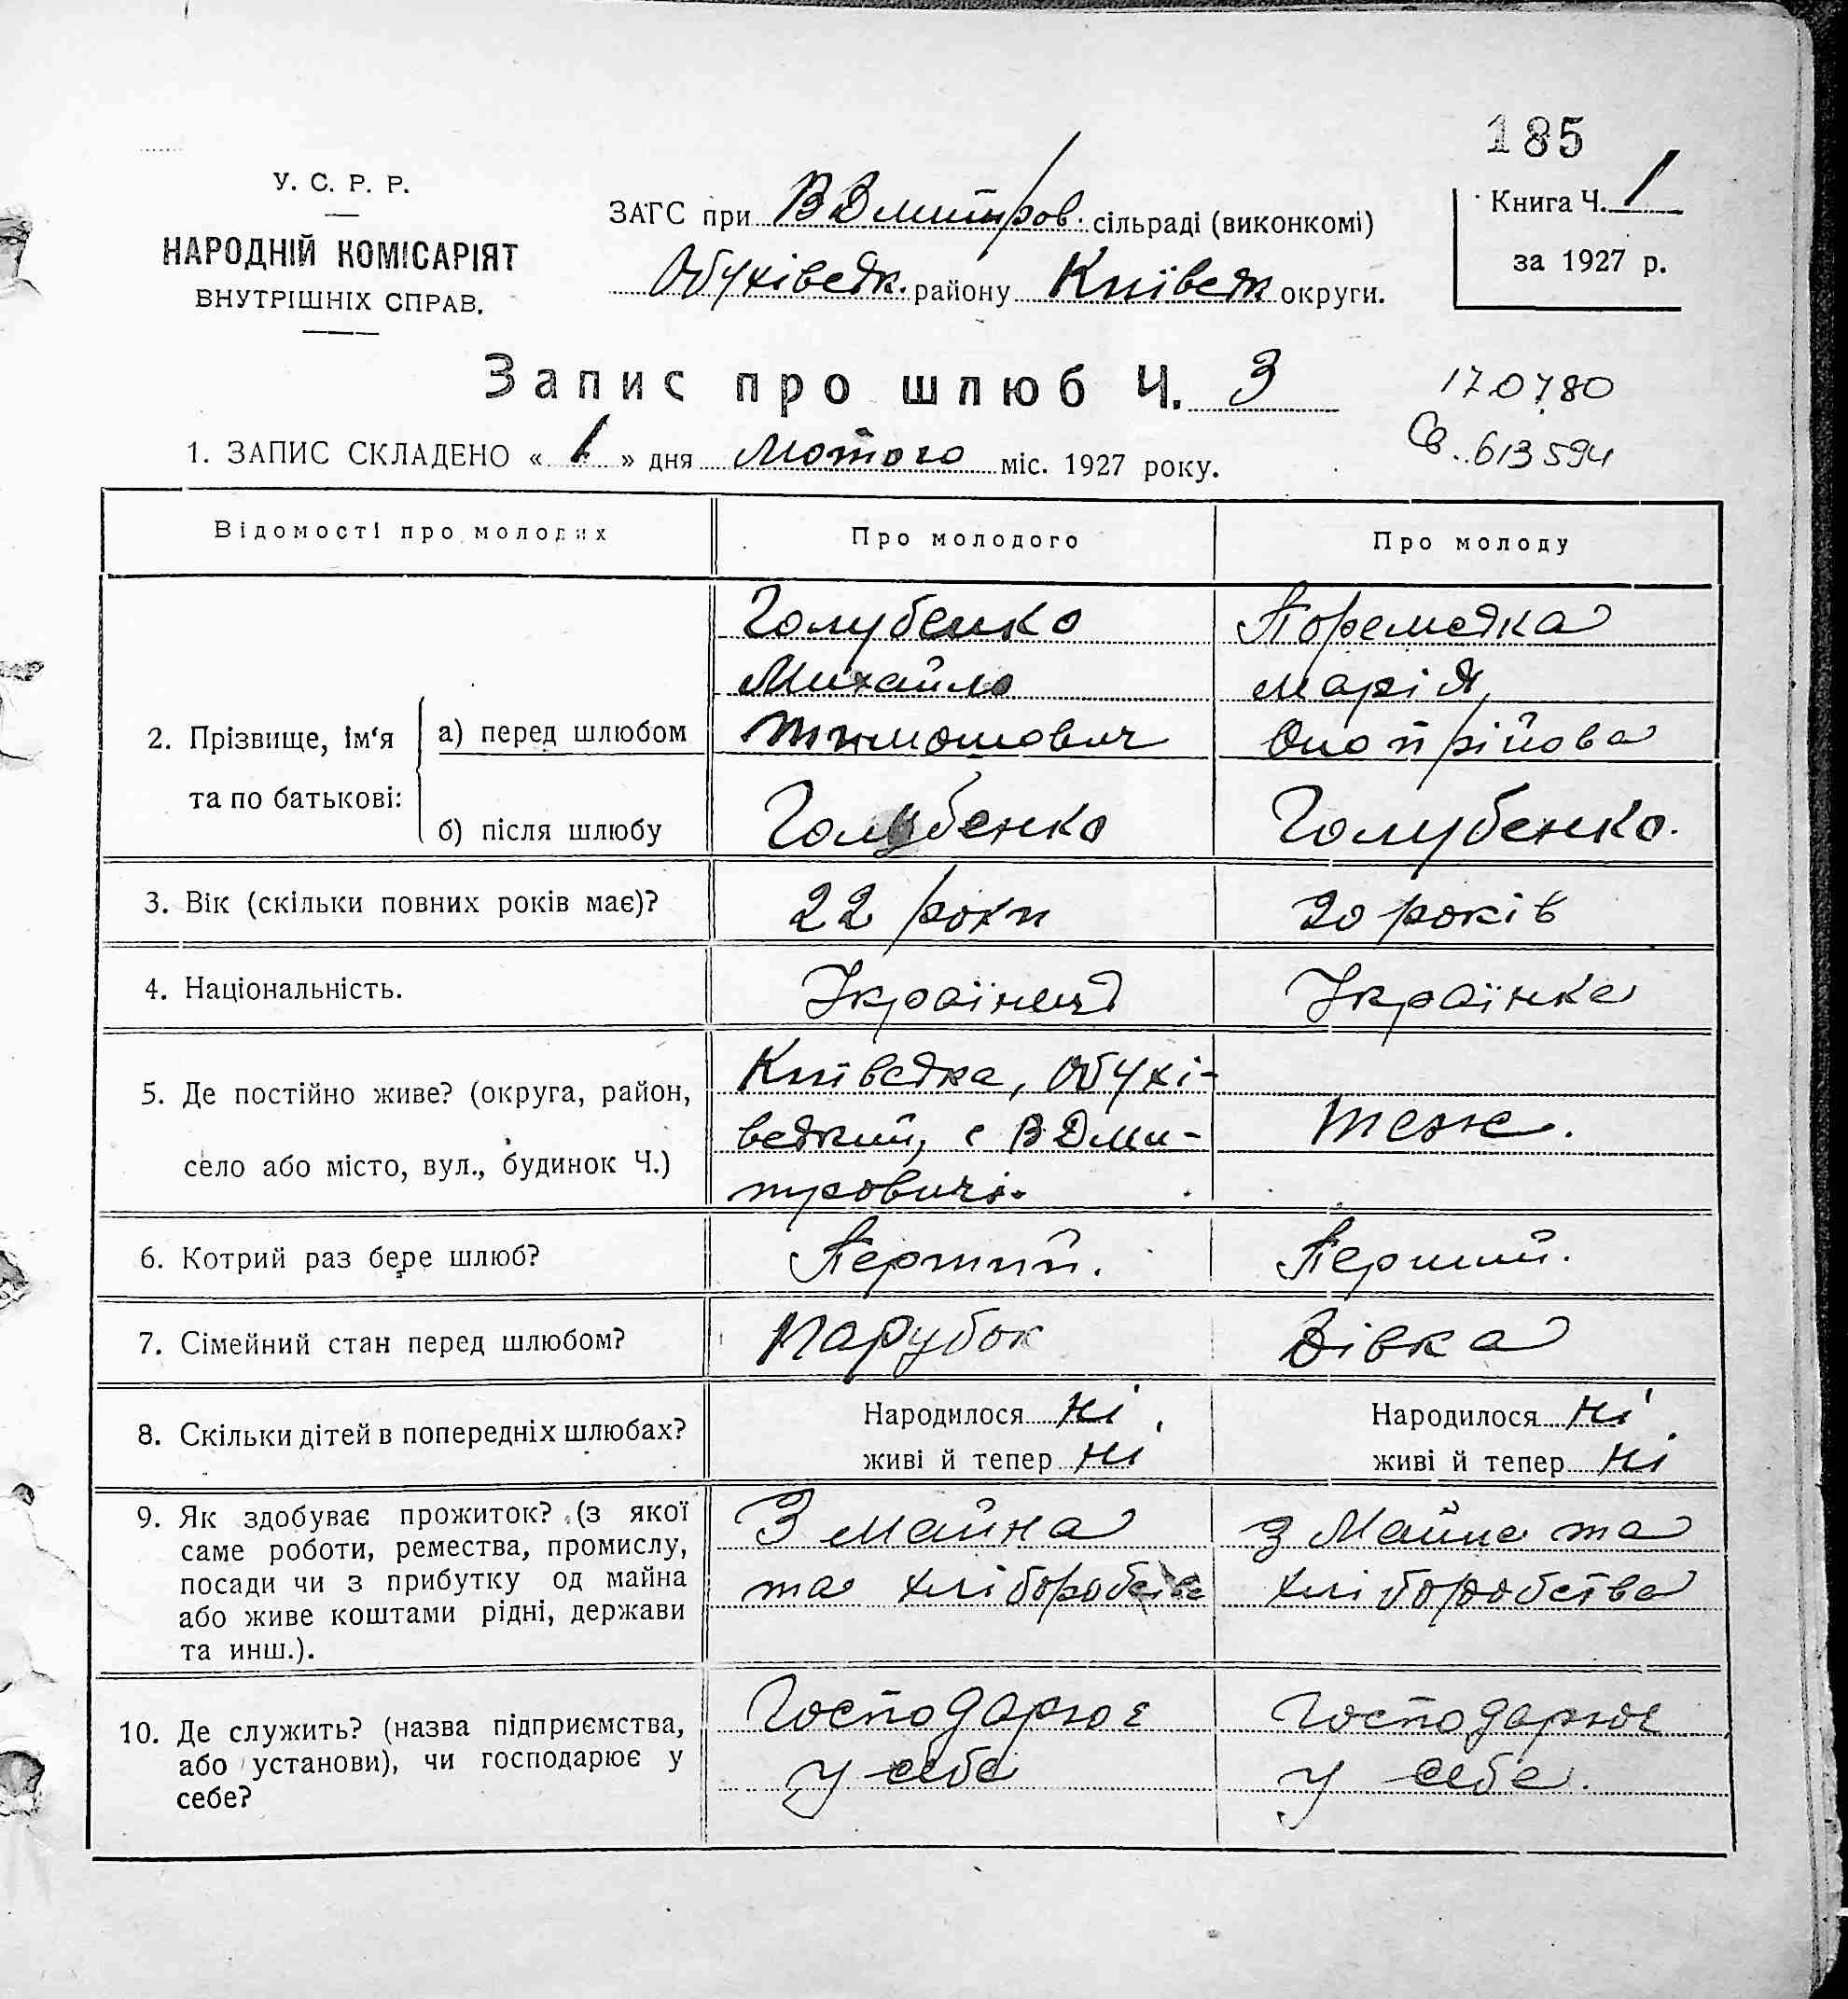 185
У. С. Р. Р.
НАРОДНІЙ КОМІСАРІЯТ
ВНУТРІШНІХ СПРАВ.
ЗАГС при В Дмитров. сільраді (виконкомі)
Обухівськ. району Київськ округи.
Книга Ч. 1
за 1927 р.
Запис про шлюб Ч. 3
170780
Св. 613594
1. ЗАПИС СКЛАДЕНО « 1 » дня Лютого міс. 1927 року.
Відомості про молодих
Про молодого
Про молоду
2. Прізвище, ім‘я та по батькові:
а) перед шлюбом
Голубенко
Михайло
Тимошович
Поремська
Марія
Онопрійова
б) після шлюбу
Голубенко
Голубенко.
3. Вік (скільки повних років має)?
22 роки
20 років
4. Національність.
Українець
Українка
5. Де постійно живе? (округа, район,
село або місто, вул., будинок Ч.)
Київська, Обухі-
вський, с В Дми-
тровичі.
теж.
6. Котрий раз бере шлюб?
Перший.
Перший.
7. Сімейний стан перед шлюбом?
Парубок
Дівка
8. Скільки дітей в попередніх шлюбах?
Народилося ні
живі й тепер ні
Народилося ні
живі й тепер ні
9. Як здобуває прожиток? (з якої
саме роботи, ремества, промислу,
посади чи з прибутку од майна
або живе коштами рідні, держави
та инш.).
З майна
та хліборобства
з Майна та
хліборобства
10. Де служить? (назва підприємства,
або установи), чи господарює у
себе?
Господарює
у себе
Господарює
у себе.